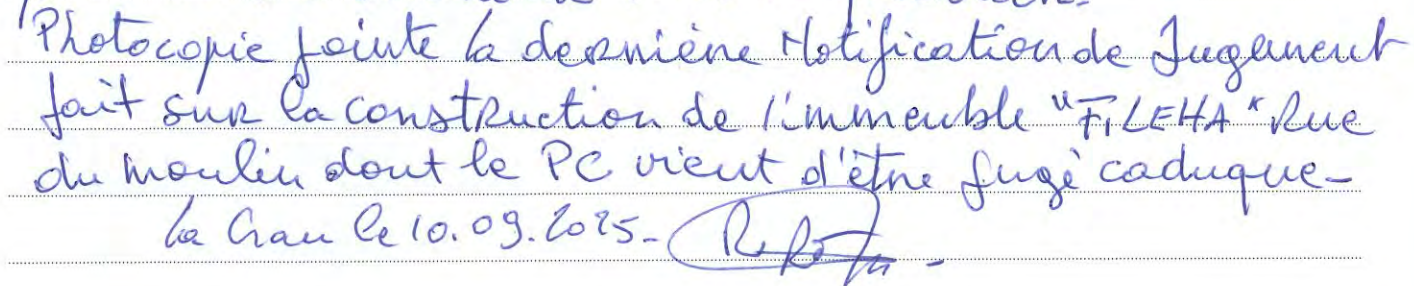 Photocopie jointe la dernière Notification de Jugement
fait sur la construction de l'immeuble "FILEHA" Rue
du moulin dont le PC vient d'être jugé caduque-
la Crau le 10.09.2025-